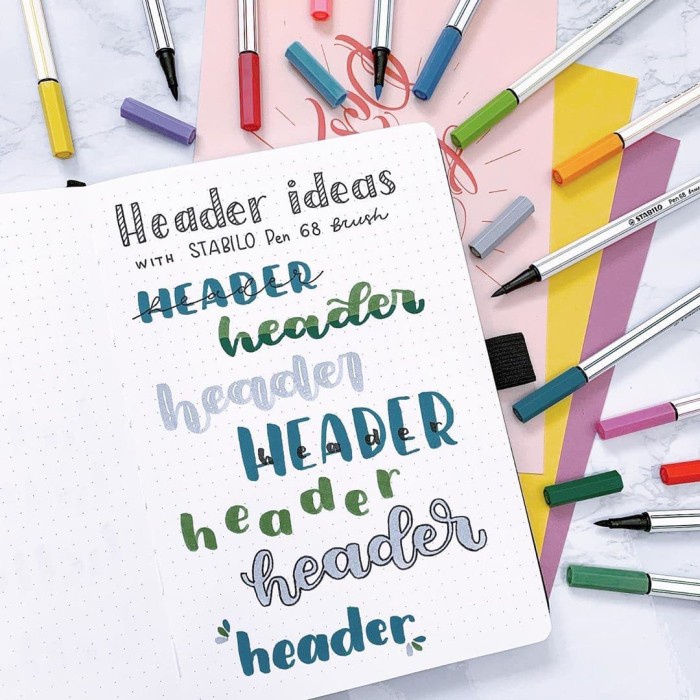 Header ideas
WITH STABILO Pen 68 Brush
HEADER
header
header
header
HEADER
header
header
header
header
STABILO Pen 68 brush